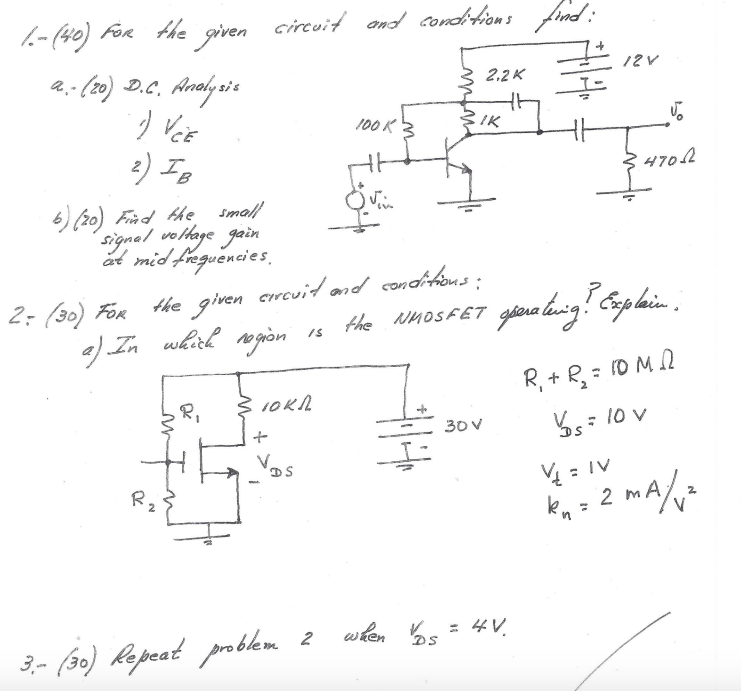 1.- (40) For the given circuit and conditions find:
a.- (20) D.C. Analysis
1) VCE
2) IB
b) (20) Find the small
signal voltage gain
at mid frequencies.
12V
2.2K
100K
1K
Vo
470Ω
Vin
2.- (30) For the given circuit and conditions:
a) In which region is the NMOSFET operating? Explain.
R₁
10KΩ
30V
VDS
R₂
R₁ + R₂ = 10 MΩ
VDS = 10 V
Vt = 1V
kn = 2 mA/V²
3.- (30) Repeat problem 2 when VDS = 4V.